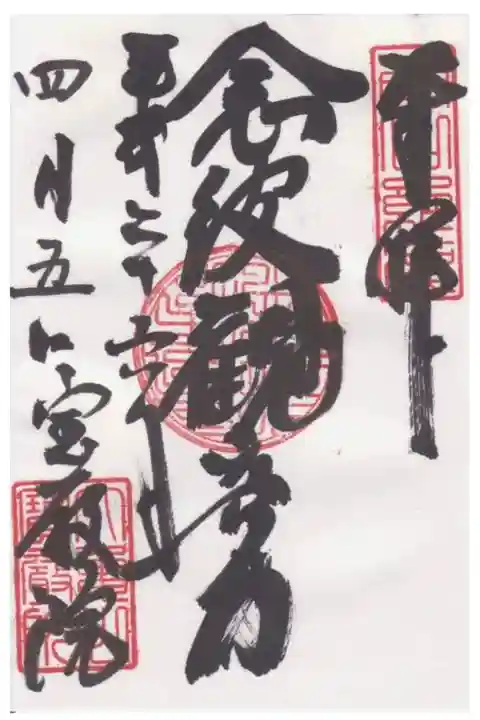 奉拝
念彼観音力
平成二十六年
四月五日 宝厳院